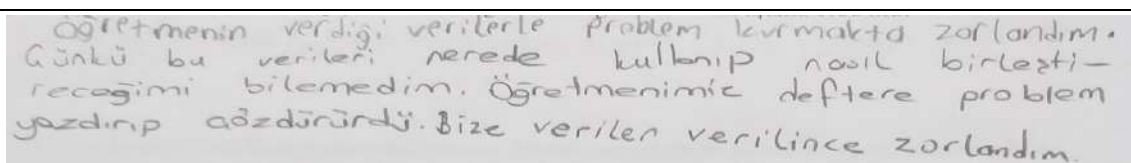 Öğretmenin verdiği verilerle problem kurmakta zorlandım.
Günkü bu verileri nerede kullanıp nasıl birleşti-
receğimi bilemedim. Öğretmenimiz deftere problem
yazdırıp çözdürürdü. Bize veriler verilince zorlandım.